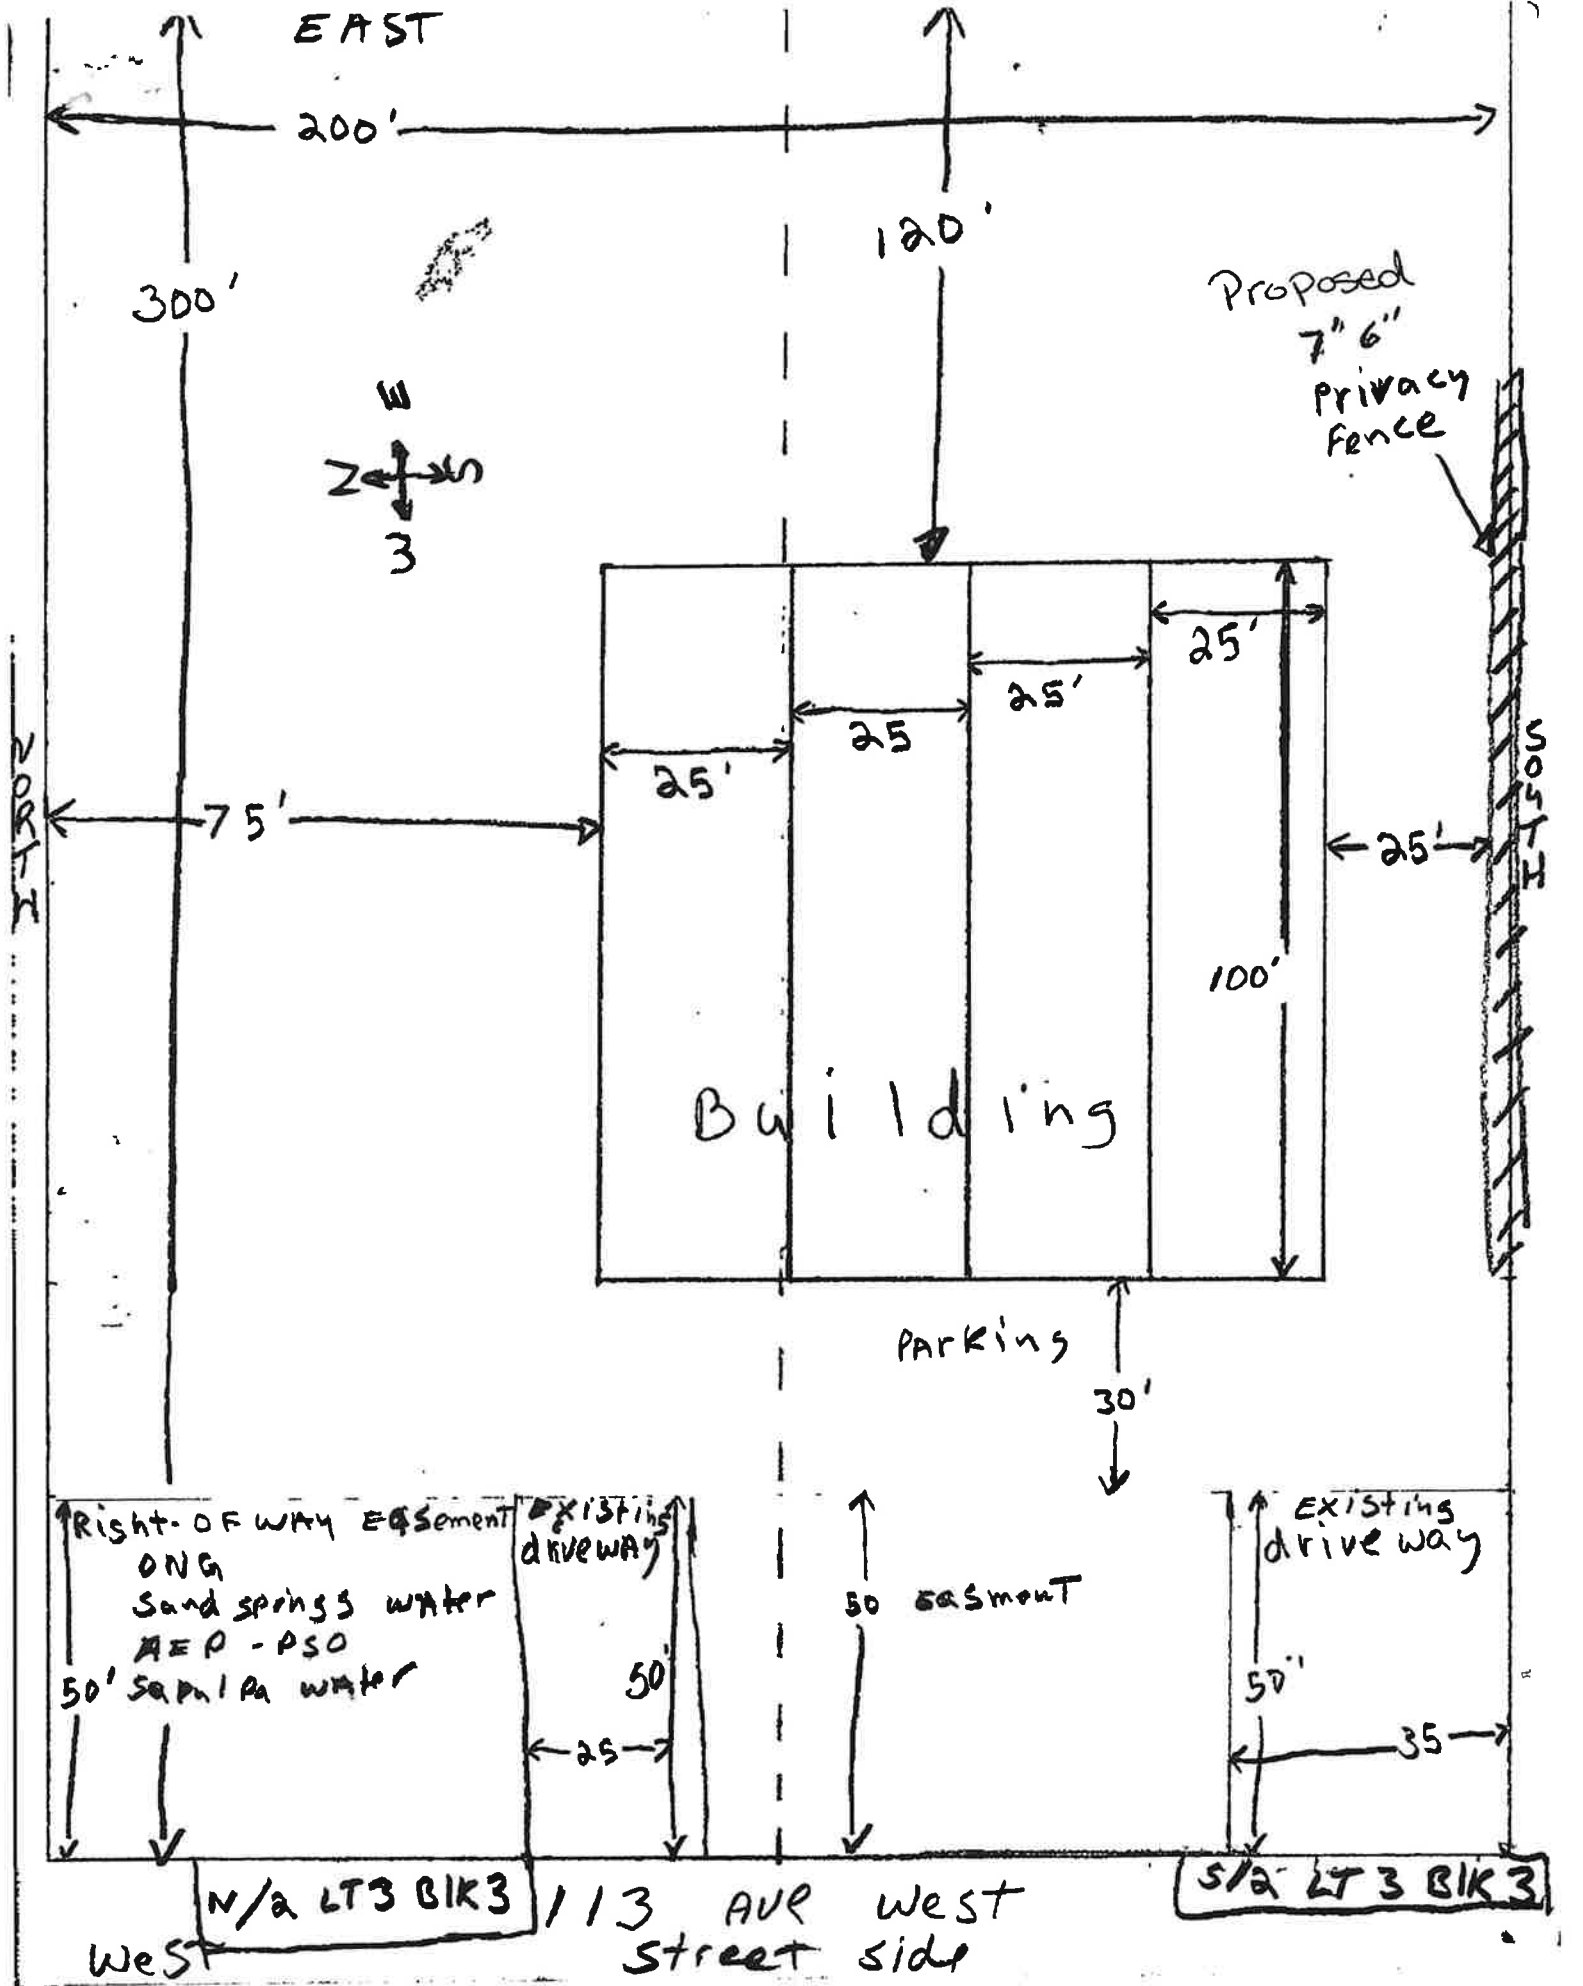 EAST
200'
120'
300'
Proposed
7" 6"
Privacy
Fence
E
N S
W
25'
25'
25
25'
NORTH
75'
25'
SOUTH
100'
Building
Parking
30'
Right-OF WAY EASement
ONG
Sand springs water
AEP - PSO
50' Sapulpa water
Existing
driveway
50'
25
50 easment
Existing
drive way
50"
35
N/2 LT3 BlK3
113 Ave West
Street Side
S/2 LT 3 BlK 3
West